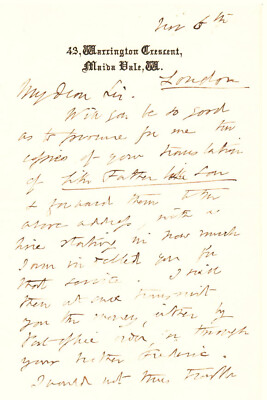 Nov 6th
43, Warrington Crescent,
Maida Vale, W.
London
My dear Sir.
Will you be so good
as to procure for me two
copies of your translation
of Like Father Like Son
& forward them to the
above address with a
line stating in how much
I am in debted you for
that service. I will
then at once transmit
you the money, either by
Post-office order, or through
your brother Frederic.
I would not thus trouble